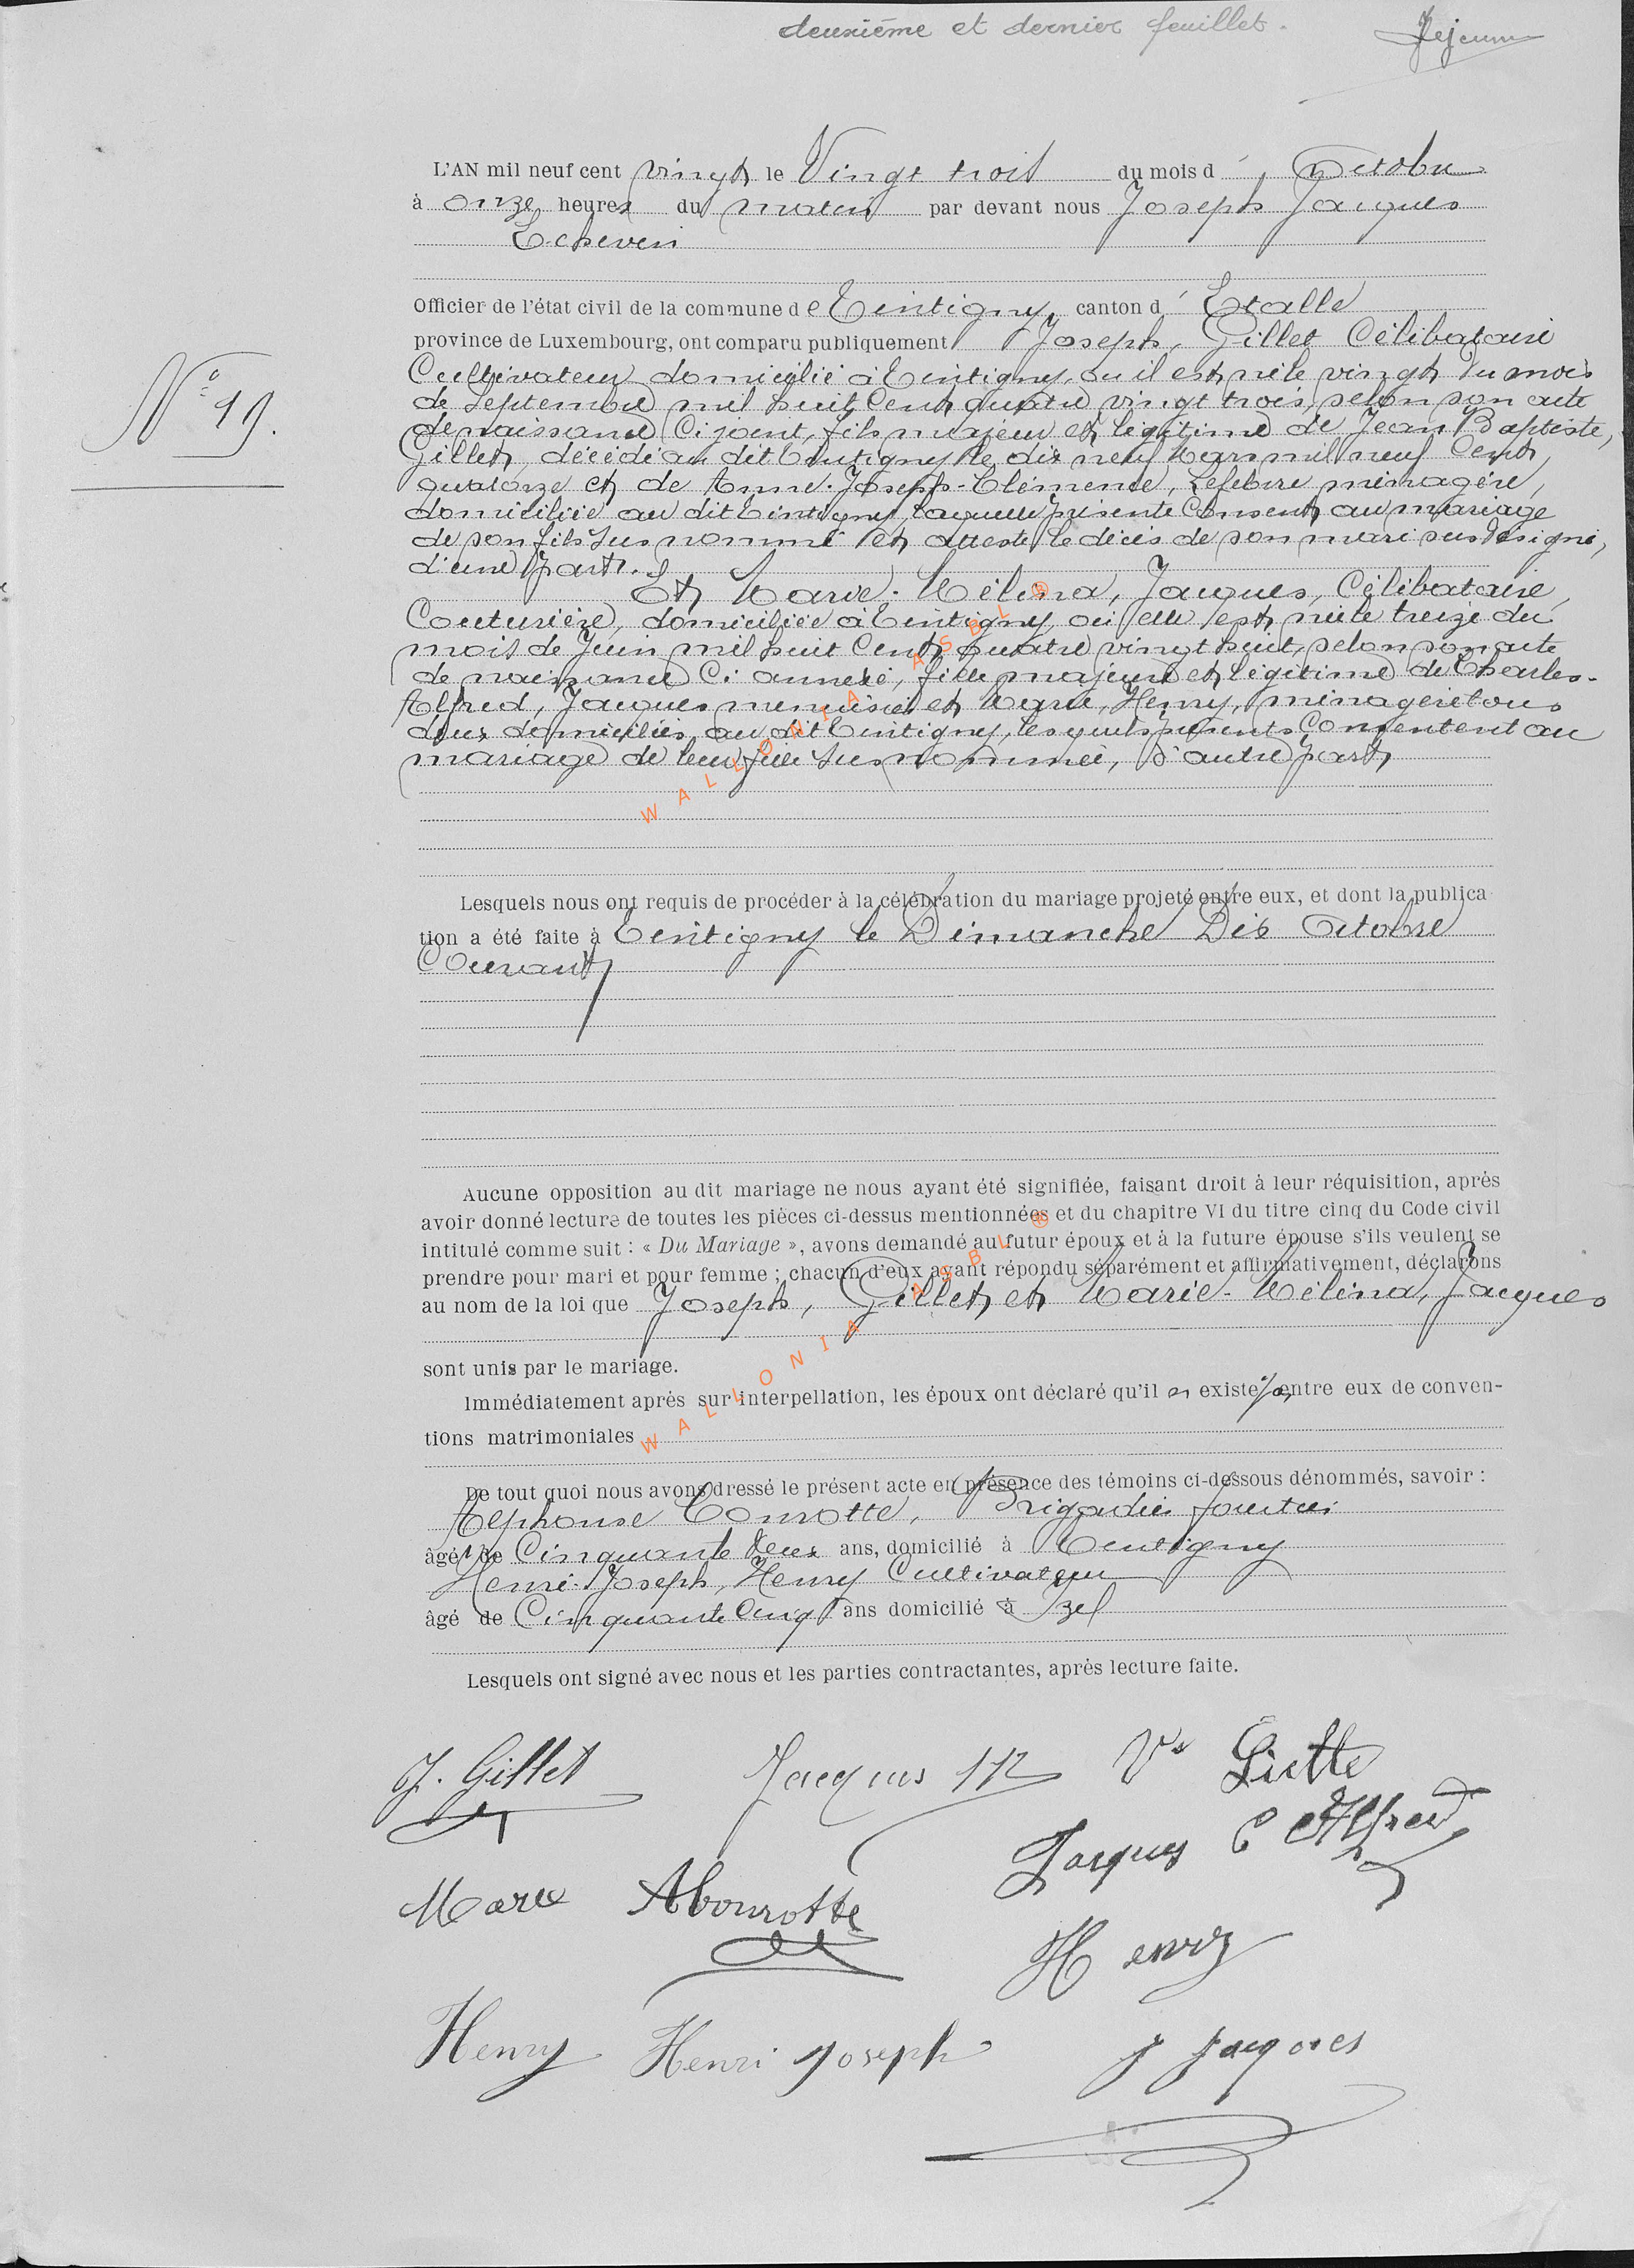 deuxième et dernier feuillet.
Lejeune
L'AN mil neuf cent vingt le Vingt trois du mois d' Octobre
à onze heures du matin par devant nous Joseph Jacques
Echevin
Officier de l'état civil de la commune de Tintigny, canton d' Etalle
province de Luxembourg, ont comparu publiquement Joseph, Gillet Célibataire
N° 19.
Cultivateur domicilié à Tintigny où il est né le vingt du mois
de Septembre mil huit Cent quatre vingt trois, selon son acte
de naissance Ci joint, fils majeur et légitime de Jean Baptiste,
Gillet, décédé au dit Tintigny le dix neuf Mars mil neuf Cent
quatorze et de Anne-Joseph-Clémence, Lefebvre ménagère,
domiciliée au dit Tintigny, laquelle présente Consent au mariage
de son fils sus nommé et atteste le décès de son mari sus désigné,
d'une part.
Et Marie-Mélina, Jacques, Célibataire,
Couturière, domiciliée à Tintigny où elle est née le treize du
mois de Juin mil huit Cent quatre vingt huit, selon son acte
de naissance Ci annexé, fille majeure et légitime de Charles-
Alfred, Jacques menuisier et Marie, Henry, ménagère tous
deux domiciliés au dit Tintigny, lesquels présents Consentent au
mariage de leur fille sus nommée, d'autre part,
WALLONIA ASBL ®
Lesquels nous ont requis de procéder à la célébration du mariage projeté entre eux, et dont la publica
tion a été faite à Tintigny le Dimanche Dix Octobre
Courant
Aucune opposition au dit mariage ne nous ayant été signifiée, faisant droit à leur réquisition, après
avoir donné lecture de toutes les pièces ci-dessus mentionnées et du chapitre VI du titre cinq du Code civil
intitulé comme suit : « Du Mariage », avons demandé au futur époux et à la future épouse s'ils veulent se
prendre pour mari et pour femme ; chacun d'eux ayant répondu séparément et affirmativement, déclarons
au nom de la loi que Joseph, Gillet et Marie-Mélina, Jacques
WALLONIA ASBL ®
sont unis par le mariage.
Immédiatement après sur interpellation, les époux ont déclaré qu'il n existe pas entre eux de conven-
tions matrimoniales
De tout quoi nous avons dressé le présent acte en présence des témoins ci-dessous dénommés, savoir :
Alphonse Bourotte, Brigadier forestier
âgé de Cinquante deux ans, domicilié à Tintigny
Henri-Joseph, Henry Cultivateur
âgé de Cinquante Cinq ans domicilié à Izel
Lesquels ont signé avec nous et les parties contractantes, après lecture faite.
J. Gillet Jacques M Ve Giette
Jacques C Alfred
Marie ABourotte
Henry
Henry Henri Joseph J Jacques